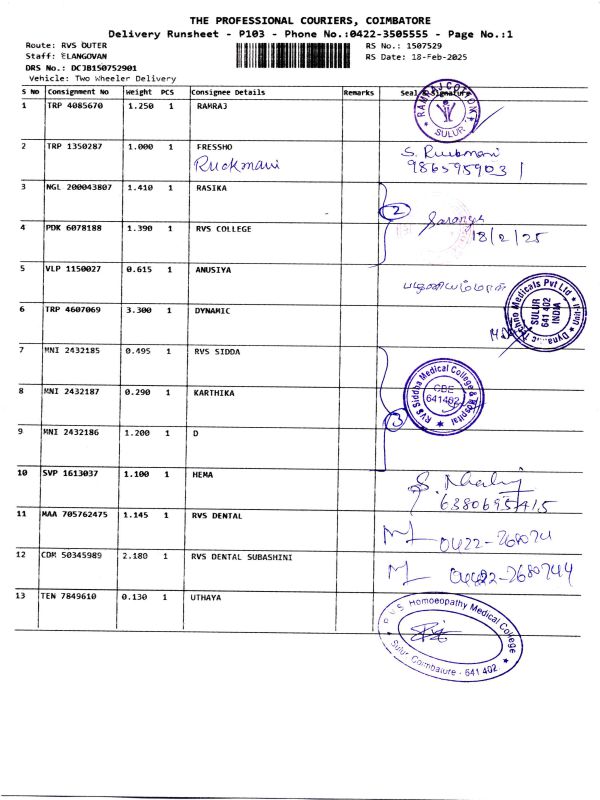 THE PROFESSIONAL COURIERS, COIMBATORE
Delivery Runsheet - P103 - Phone No.:0422-3505555 - Page No.:1
Route: RVS OUTER
RS No.: 1507529
Staff: ELANGOVAN
RS Date: 18-Feb-2025
DRS No.: DCJB150752901
Vehicle: Two Wheeler Delivery
S No Consignment No Weight PCS Consignee Details Remarks Seal & Signature
1 TRP 4085670 1.250 1 RAMRAJ
RAMRAJ COTTON
SULUR
2 TRP 1350287 1.000 1 FRESSHO
Ruckmani
S. Ruckmani
9865959031
3 NGL 200043807 1.410 1 RASIKA
2
4 PDK 6078188 1.390 1 RVS COLLEGE
Saranya
18/2/25
5 VLP 1150027 0.615 1 ANUSIYA
6 TRP 4607069 3.300 1 DYNAMIC
Techno Medicals Pvt Ltd
SULUR
641 402
INDIA
7 MNI 2432185 0.495 1 RVS SIDDA
8 MNI 2432187 0.290 1 KARTHIKA
RVS Siddha Medical College & Hospital
CBE
641402
3
9 MNI 2432186 1.200 1 D
10 SVP 1613037 1.100 1 HEMA
6380695415
11 MAA 705762475 1.145 1 RVS DENTAL
0422-268074
12 COM 50345989 2.180 1 RVS DENTAL SUBASHINI
0422-2680744
13 TEN 7849610 0.130 1 UTHAYA
R.V.S. Homoeopathy Medical College
Sulur, Coimbatore - 641 402.